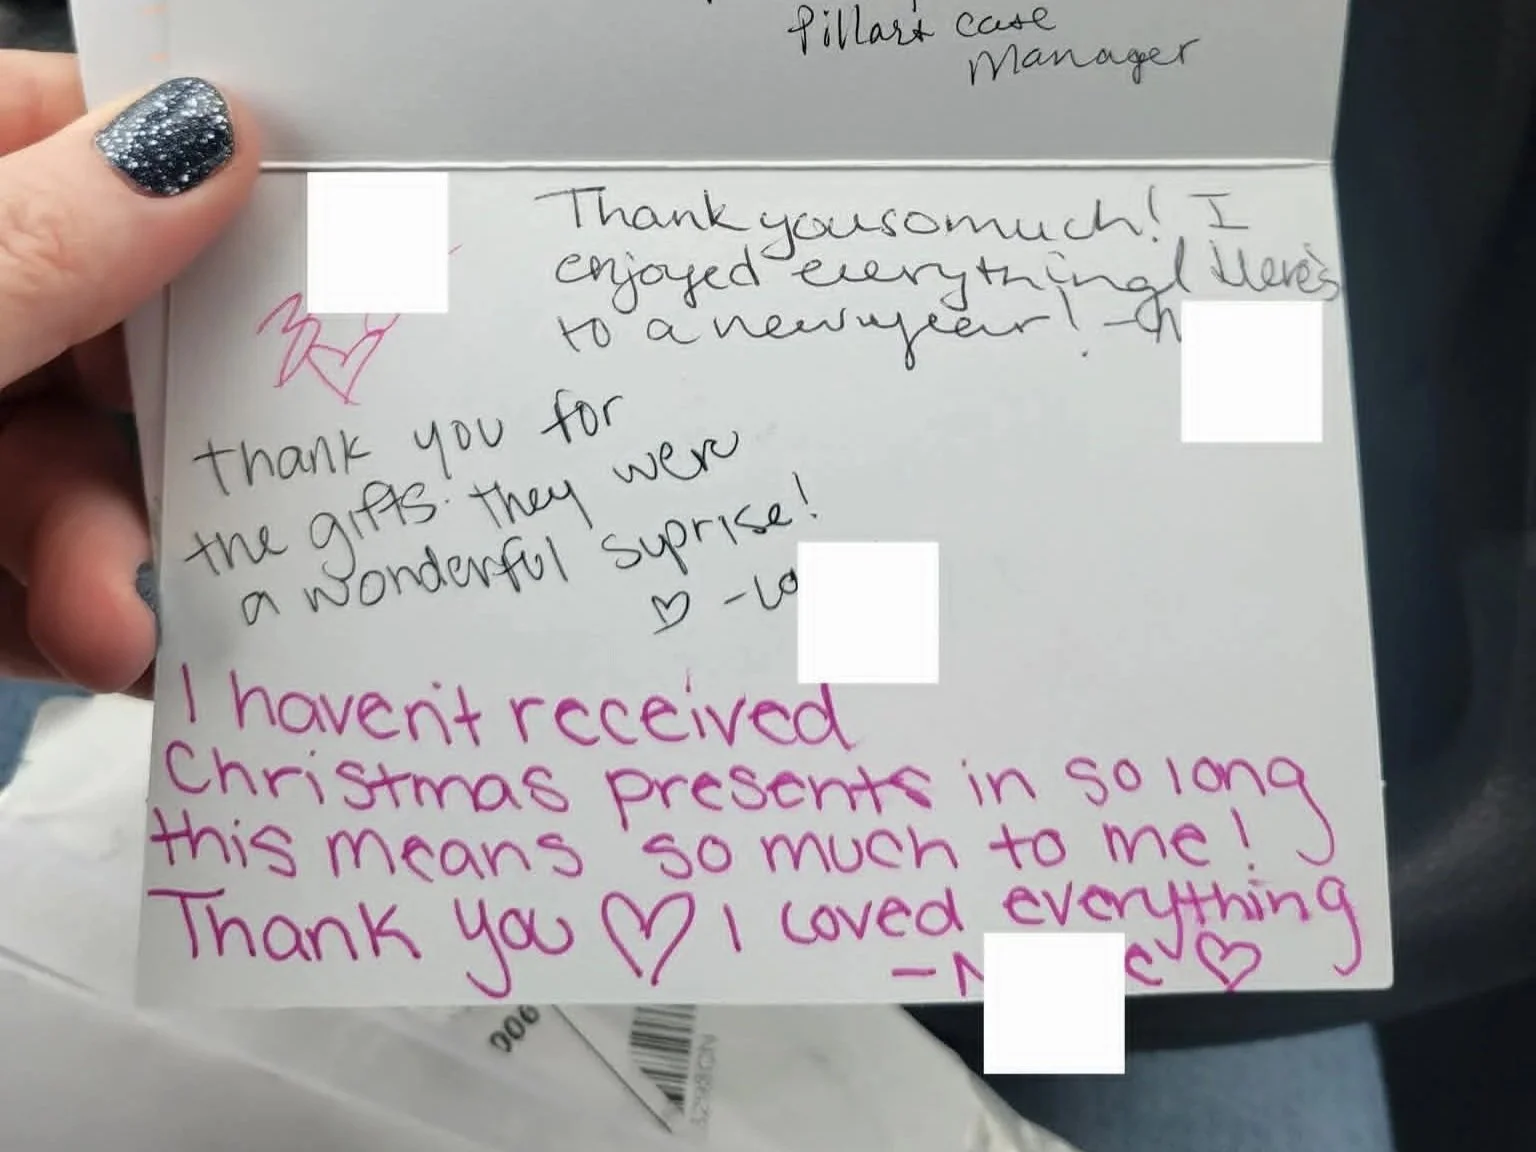 Pillars case
Manager
Thank you so much! I
enjoyed everything! Here's
to a new year! -
thank you for
the gifts. they were
a wonderful suprise!
♡ -
I haven't received
Christmas presents in so long
this means so much to me!
Thank you ♡ I loved everything
- N c ♡
D06